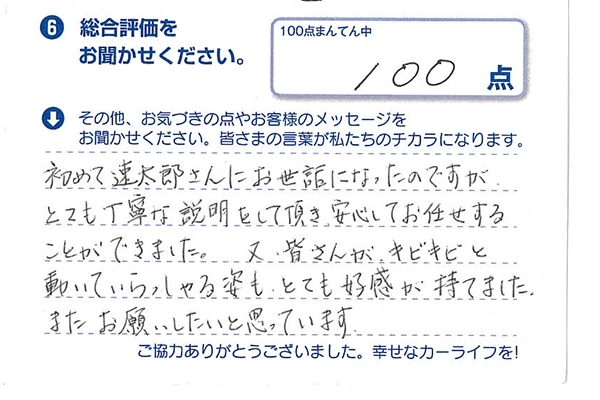 6 総合評価を
お聞かせください。
100点まんてん中
100 点
その他、お気づきの点やお客様のメッセージを
お聞かせください。皆さまの言葉が私たちのチカラになります。
初めて連太郎さんにお世話になったのですが
とても丁寧な説明をして頂き、安心してお任せする
ことができました。 又、皆さんが、キビキビと
動いていらっしゃる姿も、とても好感が持てました。
またお願いしたいと思っています。
ご協力ありがとうございました。幸せなカーライフを!